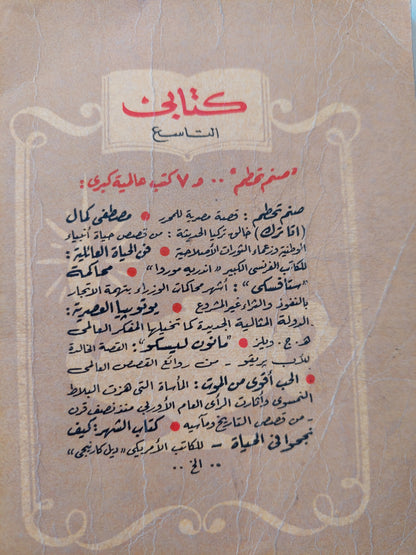 كتابي
التاسع
"صنم تحطم" .. و ٧ كتب عالمية كبرى :
صنم تحطم : قصة مصرية للمحرر • مصطفى كمال
(اتاترك) خالق تركيا الحديثة : من قصص حياة أنبياء
الوطنية وزعماء الثورات الأصلاحية • فن الحياة العائلية :
للكاتب الفرنسى الكبير « اندريه موروا » • محاكمة
« ستافسكى » : أشهر محاكمات الوزراء بتهمة الاتجار
بالنفوذ والثراء غير المشروع • يوتوبيا العصرية :
الدولة المثالية الجديدة كما تخيلها المفكر العالمى
هـ . ج . ويلز • « مانون ليسكو » : القصة الخالدة
للأب بريفو - من روائع القصص العالمى
• الحب أقوى من الموت : المأساة التى هزت البلاط
النمسوى وأثارت الرأى العام الأوربى منذ نصف قرن
- من قصص التاريخ ومآسيه • كتاب الشهر : كيف
نجحوا فى الحياة - للكاتب الأمريكى « ديل كارنيجى »
.. الخ ..